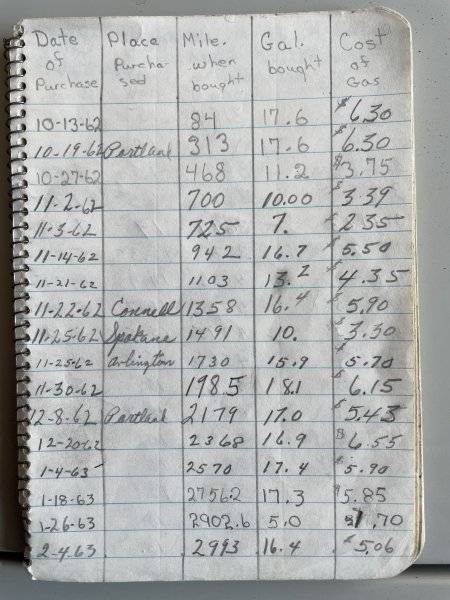 Date Place Mile. Gal. Cost
of Purcha- when bought of
Purchase sed bought Gas
10-13-62 84 17.6 $6.30
10-19-62 Portland 313 17.6 $6.30
10-27-62 468 11.2 $3.75
11-2-62 700 10.00 $3.39
11-3-62 725 7. $2.35
11-14-62 942 16.7 $5.50
11-21-62 1103 13.2 $4.35
11-22-62 Connell 1358 16.4 $5.90
11-25-62 Spokane 1491 10. $3.30
11-25-62 Arlington 1730 15.9 $5.70
11-30-62 1985 18.1 $6.15
12-8-62 Portland 2179 17.0 $5.43
12-20-62 2368 16.9 $6.55
1-4-63 2570 17.4 $5.90
1-18-63 2756.2 17.3 $5.85
1-26-63 2902.6 5.0 $1.70
2-4-63 2993 16.4 $5.06